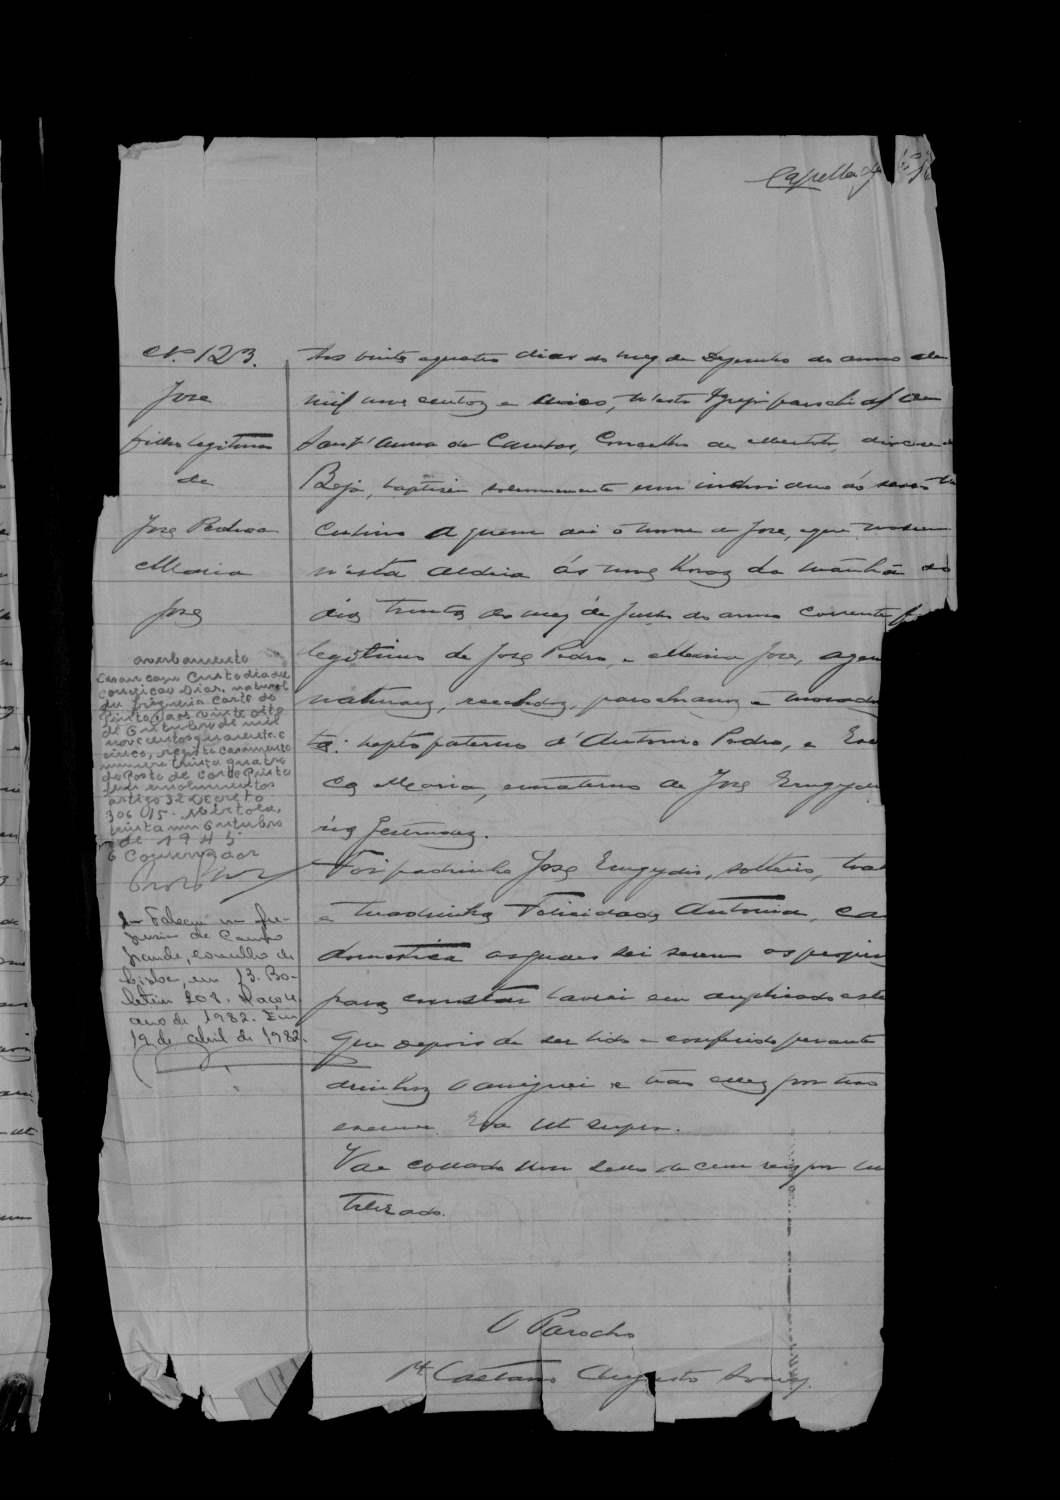 Capella
Nº 123.
José
filho legitimo
de
José Pedro e
Maria
José
averbamento
Casou com Custodia da
Conceição Dias, natural
da freguesia Corte do
Pinto, aos vinte oito
de Outubro de mil
novecentos quarenta e
cinco, registo casamento
numero trinta quatro
do Posto de Corte Pinto
emolumentos
artigo 32 Decreto
30615. Mertola,
trinta um Outubro
de 1945
O Conservador
2- Faleceu na fre-
guesia de Campo
Grande, concelho de
Lisboa, em 13. Bo-
letim 208. Março
ano de 1982. Em
19 de abril de 1982.
Aos vinte e quatro dias do mez de Dezembro do anno de
mil nove centos e cinco, n'esta Igreja parochial de
Sant'Anna de Cambas, Concelho de Mertola, diocese de
Beja, baptisei solemnemente um individuo do sexo
culino a quem dei o nome de José, e que nasceu
n'esta aldeia ás nove horas da manhã do
dia trinta do mez de Julho do anno corrente
legitimo de José Pedro, e Maria José,
naturaes, recebidos, parochianos e
neto paterno d'Antonio Pedro, e
ca Maria, e materno de José Emygdio
ria Jeronima.
Foi padrinho José Emygdio, solteiro,
e madrinha Felicidade Antonia,
domestica os quaes sei serem os proprios
para constar lavrei em duplicado este
que depois de ser lido e conferido perante
drinhos o assignei e não elles por não
escrever. Era ut supra.
Vae collado um sello de cem reis por
tilisado.
O Parocho
Pe. Caetano Augusto